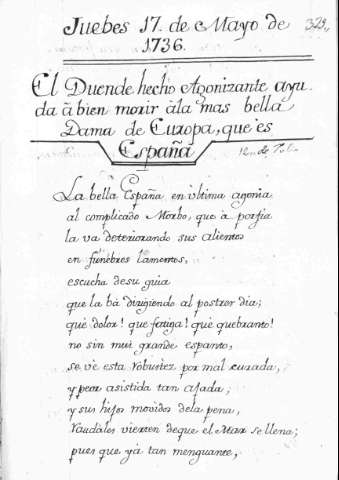 Juebes 17. de Mayo de
1736.
El Duende hecho Agonizante ayu
da à bien morir àla mas bella
Dama de Europa, que es
España
La bella España en ultima agonia
al complicado Morbo, que à porfia
la va deteriorando sus alientos
en funebres lamentos,
escucha desu guia
que la bà dirigiendo al postrer dia;
què dolor! que fatiga! què quebranto!
no sin mui grande espanto,
se vè esta robustez por mal curada,
y peor asistida tan ajada;
y sus hijos movidos dela pena,
raudales vierten deque el Mar se llena;
pues que yà tan menguante,